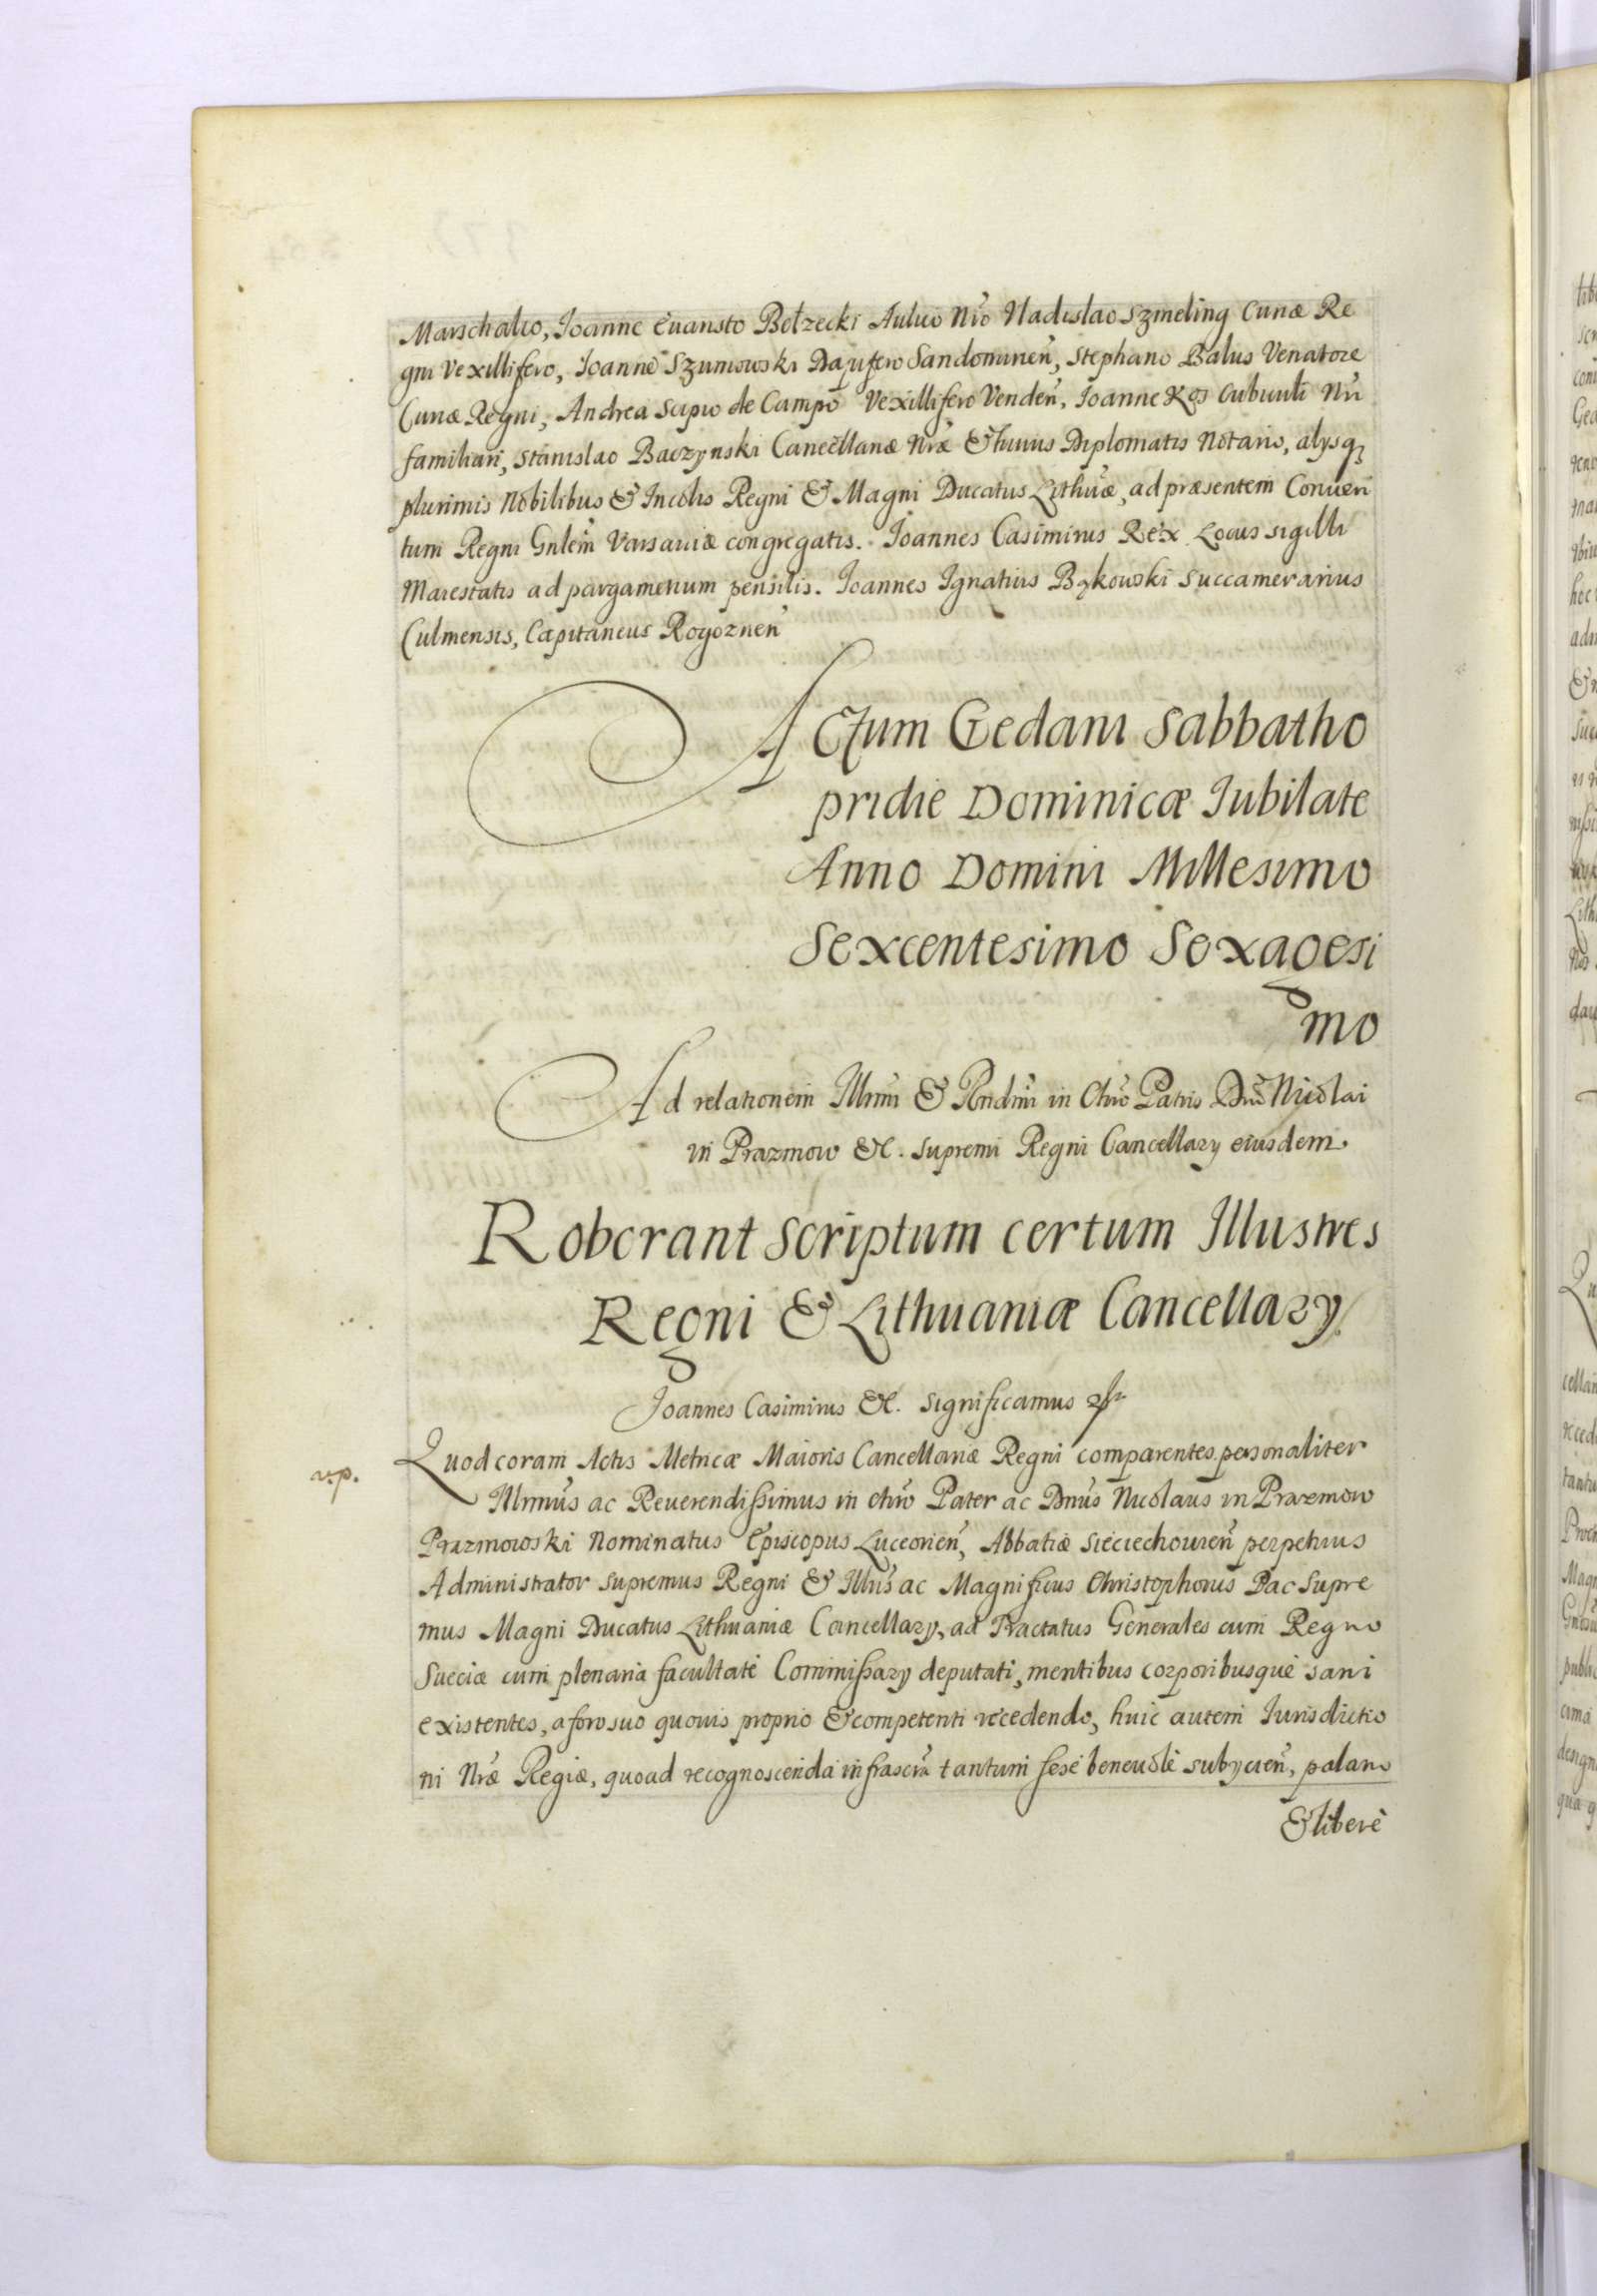 Marschalco, Ioanne Euansto Bełzecki Aulico Nro Vladislao Szmeling Curiæ Re
gni Vexillifero, Ioanne Szumowski Dapifero Sandomirien, Stephano Balus Venatore
Curiæ Regni, Andrea Scipio de Campo Vexillifero Venden, Ioanne Kos Cubiculi Nri
familiari, Stanislao Baczynski Cancellariæ Nræ & huius Diplomatis Notario, alysq
plurimis Nobilibus & Incolis Regni & Magni Ducatus Lithuæ, ad præsentem Conuen
tum Regni Gnlem Varsauiæ congregatis. Ioannes Casimirus Rex. Locus sigilli
Maiestatis ad pargamenum pensilis. Ioannes Ignatius Bąkowski Succamerarius
Culmensis, Capitaneus Rogoznen
Actum Gedani Sabbatho
pridie Dominicæ Iubilate
Anno Domini Millesimo
Sexcentesimo Sexagesi
mo
Ad relationem Illrmi & Rndmi in Chro Patris Dni Nicolai
in Prazmow &c. supremi Regni Cancellary eiusdem.
Roborant scriptum certum Illustres
Regni & Lithuaniæ Cancellary.
Ioannes Casimirus &c. Significamus
Quod coram Actis Metricæ Maioris Cancellariæ Regni comparentes personaliter
r.p.
Illrmus ac Reuerendissimus in Chro Pater ac Dnus Nicolaus in Prazmow
Prazmowski Nominatus Episcopus Luceorien, Abbatiæ Sieciechouien perpetuus
Administrator supremus Regni & Illris ac Magnificus Christophorus Pac Supre
mus Magni Ducatus Lithuaniæ Cancellary, ad Tractatus Generales cum Regno
Sueciæ cum plenaria facultate Commissary deputati, mentibus corporibusque sani
existentes, a foro suo quouis proprio & competenti recedendo, huic autem Iurisdictio
ni Nræ Regiæ, quoad recognoscenda infrascra tantum sese beneuole subycien, palam
& libere